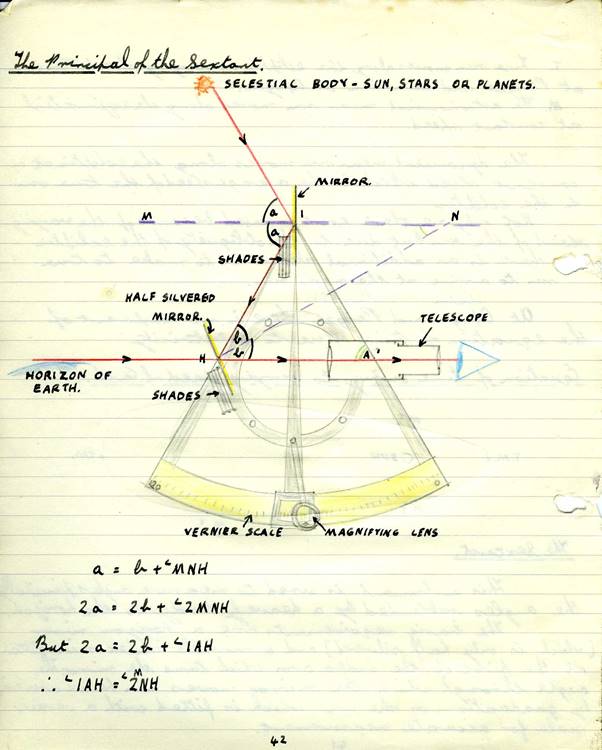 The Principal of the Sextant.
SELESTIAL BODY - SUN, STARS OR PLANETS.
MIRROR.
a
M
I
N
a
SHADES
HALF SILVERED
MIRROR.
TELESCOPE
b
b
H
A
HORIZON OF
EARTH.
SHADES
0
VERNIER SCALE
MAGNIFYING LENS
a = b + ∠MNH
2a = 2b + ∠2MNH
But 2a = 2b + ∠IAH
∴ ∠IAH = ∠2MNH
42